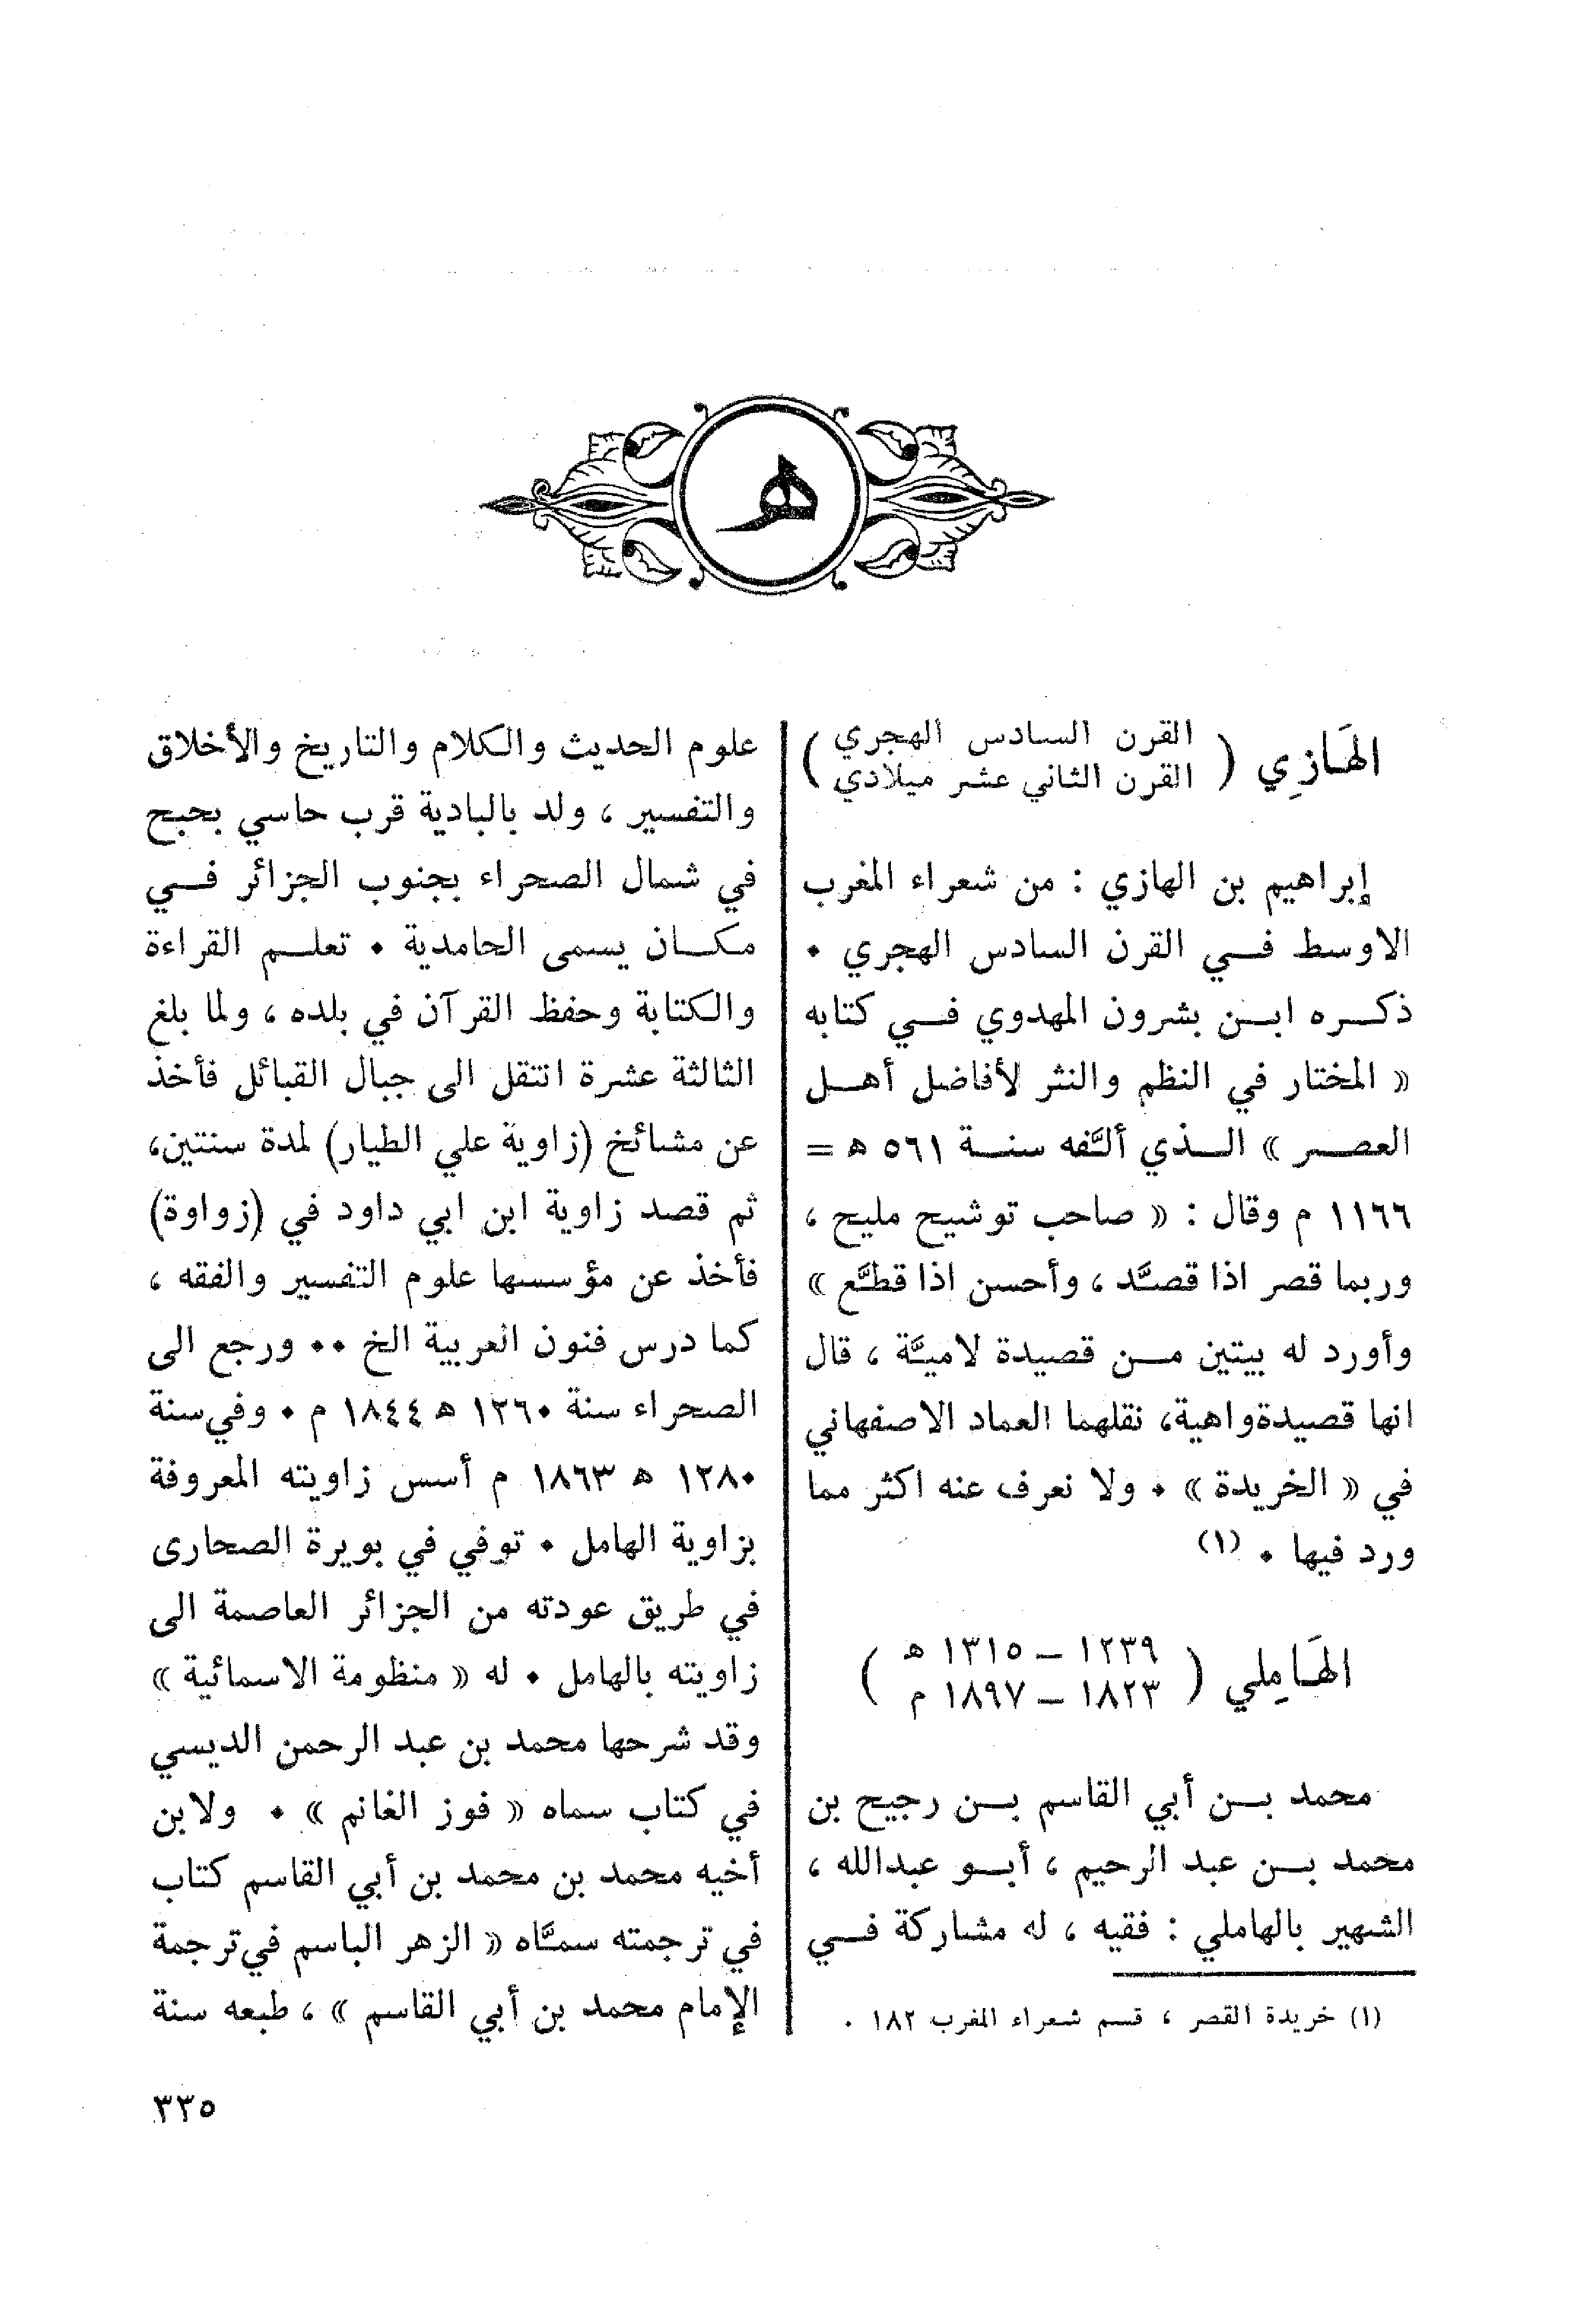 هـ
الهَازِي ( القرن السادس الهجري
القرن الثاني عشر ميلادي )
إبراهيم بن الهازي : من شعراء المغرب
الاوسط فــي القرن السادس الهجري .
ذكــره ابــن بشرون المهدوي فــي كتابه
« المختار في النظم والنثر لأفاضل أهــل
العصــر » الــذي ألَّفه سنــة ٥٦١ هـ =
١١٦٦ م وقال : « صاحب توشيح مليح ،
وربما قصر اذا قصَّد ، وأحسن اذا قطَّع »
وأورد له بيتين مــن قصيدة لاميَّة ، قال
انها قصيدة واهية، نقلهما العماد الاصفهاني
في « الخريدة » . ولا نعرف عنه اكثر مما
ورد فيها . (١)
الهَامِلي ( ١٢٣٩ – ١٣١٥ هـ
١٨٢٣ – ١٨٩٧ م )
محمد بــن أبي القاسم بــن رجيح بن
محمد بــن عبد الرحيم ، أبــو عبدالله ،
الشهير بالهاملي : فقيه ، له مشاركة فــي
(١) خريدة القصر ، قسم شعراء المغرب ١٨٢ .
علوم الحديث والكلام والتاريخ والأخلاق
والتفسير ، ولد بالبادية قرب حاسي بحبح
في شمال الصحراء بجنوب الجزائر فــي
مكــان يسمى الحامدية . تعلــم القراءة
والكتابة وحفظ القرآن في بلده ، ولما بلغ
الثالثة عشرة انتقل الى جبال القبائل فأخذ
عن مشائخ (زاوية علي الطيار) لمدة سنتين،
ثم قصد زاوية ابن ابي داود في (زواوة)
فأخذ عن مؤسسها علوم التفسير والفقه ،
كما درس فنون العربية الخ .. ورجع الى
الصحراء سنة ١٢٦٠ هـ ١٨٤٤ م . وفي سنة
١٢٨٠ هـ ١٨٦٣ م أسس زاويته المعروفة
بزاوية الهامل . توفي في بويرة الصحارى
في طريق عودته من الجزائر العاصمة الى
زاويته بالهامل . له « منظومة الاسمائية »
وقد شرحها محمد بن عبد الرحمن الديسي
في كتاب سماه « فوز الغانم » . ولابن
أخيه محمد بن محمد بن أبي القاسم كتاب
في ترجمته سمَّاه « الزهر الباسم في ترجمة
الإمام محمد بن أبي القاسم » ، طبعه سنة
٣٣٥